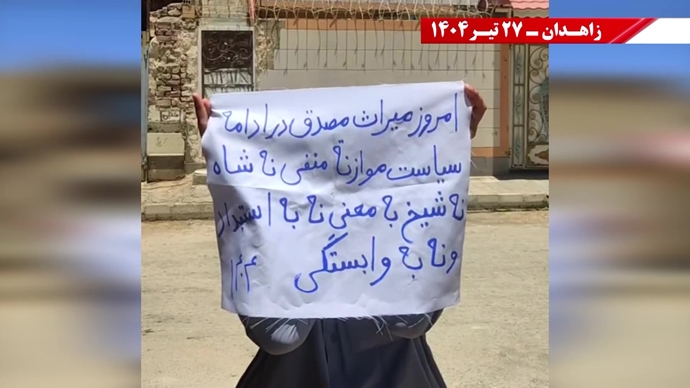 زاهدان ـ ۲۷ تیر ۱۴۰۴
امروز میراث مصدق در ادامه
سیاست موازنه منفی نه شاه
نه شیخ به معنی نه به استبداد
و نه به وابستگی